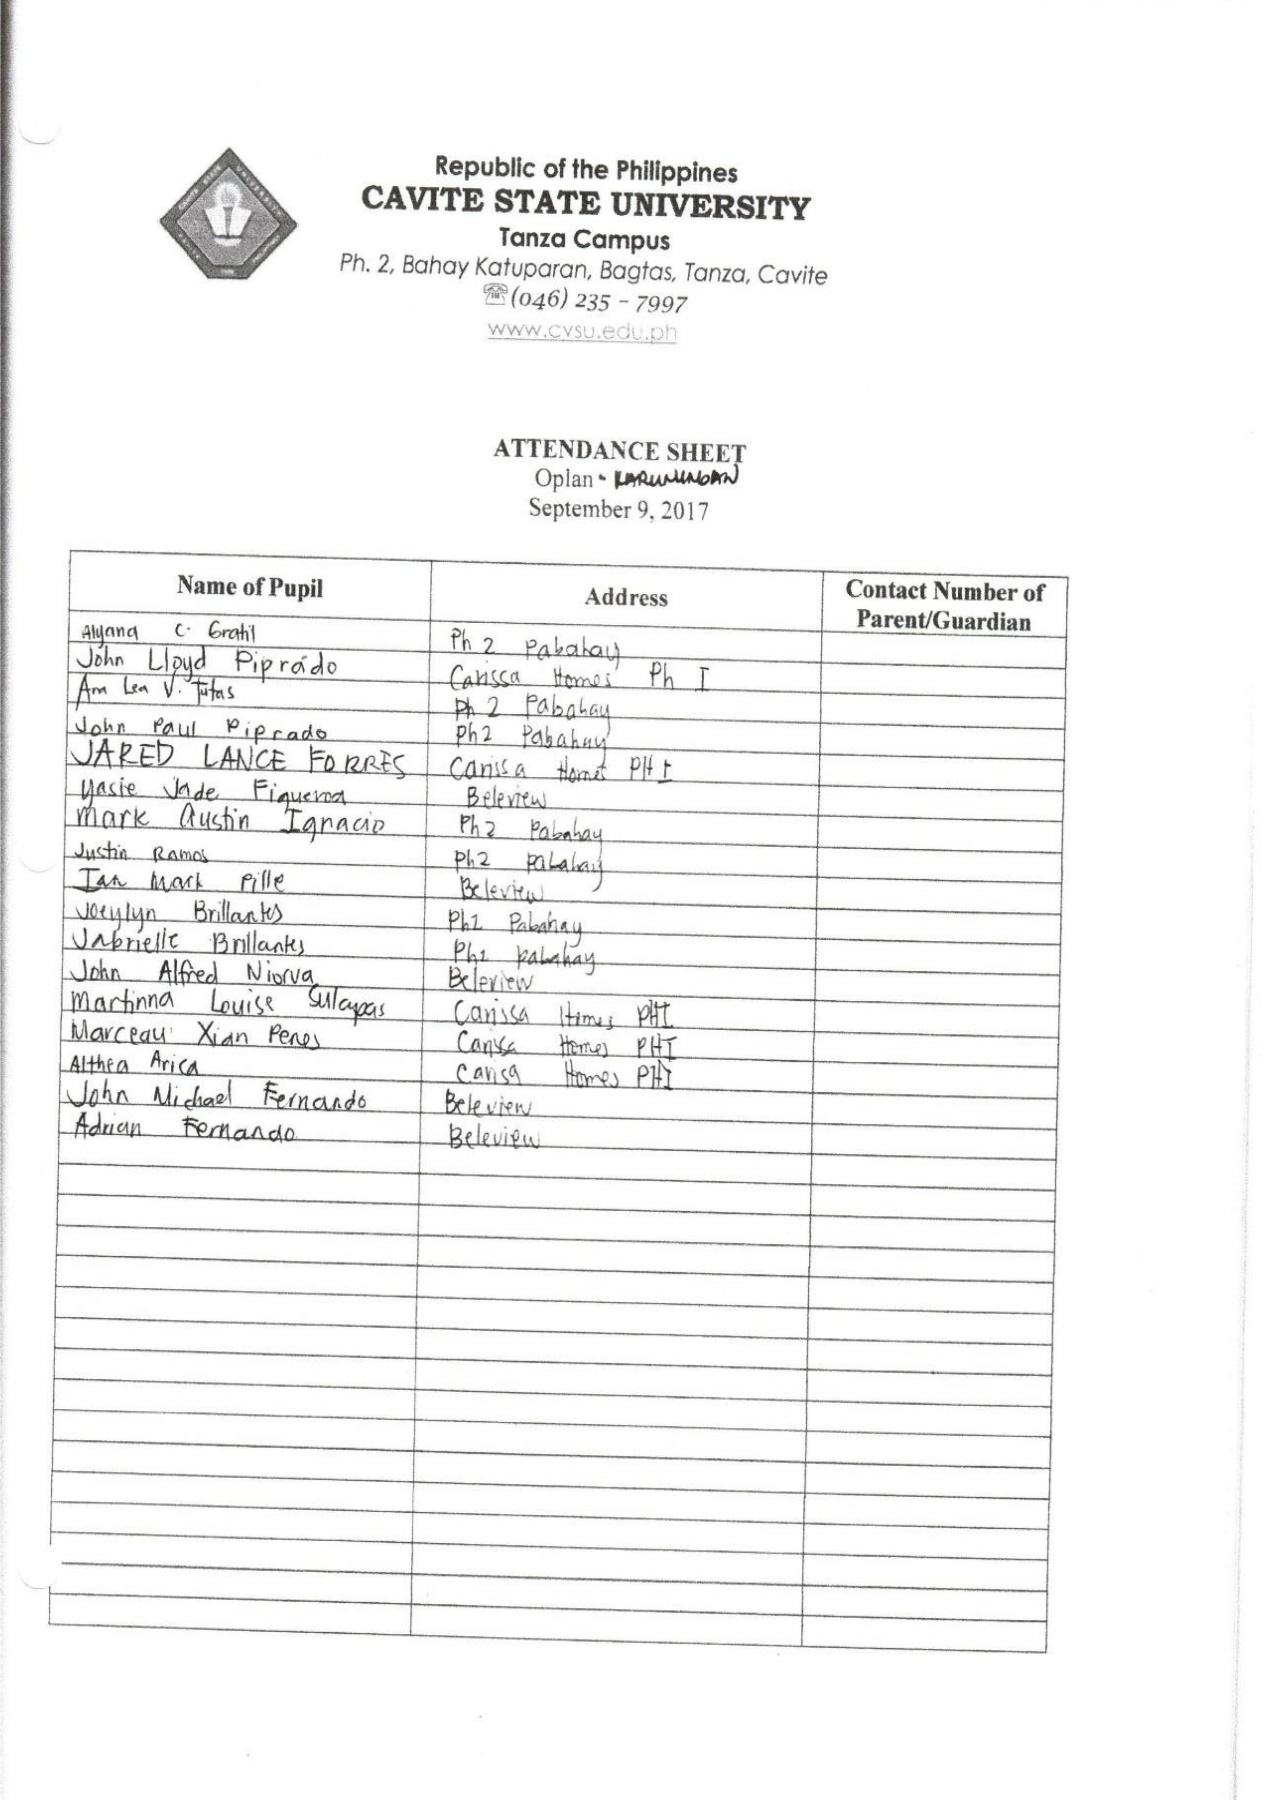 Republic of the Philippines
CAVITE STATE UNIVERSITY
Tanza Campus
Ph. 2, Bahay Katuparan, Bagtas, Tanza, Cavite
☏(046) 235 - 7997
www.cvsu.edu.ph
ATTENDANCE SHEET
Oplan - KARUNUNGAN
September 9, 2017
Name of Pupil Address Contact Number of Parent/Guardian
Alyana C. Gratil Ph 2 Pabahay
John Lloyd Piprado Carissa Homes Ph I
Ana Lea V. Tutas Ph 2 Pabahay
John Paul Piprado Ph2 Pabahay
JARED LANCE FORRES Carissa Homes PH I
Yasie Jade Figueroa Beleview
Mark Austin Ignacio Ph2 Pabahay
Justin Ramos Ph2 Pabahay
Ian Mark Pille Beleview
Joeylyn Brillantes Ph2 Pabahay
Jabrielle Brillantes Ph2 Pabahay
John Alfred Niorva Beleview
Martinna Louise Sulapas Carissa Homes PHI
Marceau Xian Peres Carissa Homes PHI
Althea Arica Carisa Homes PHI
John Michael Fernando Beleview
Adrian Fernando Beleview